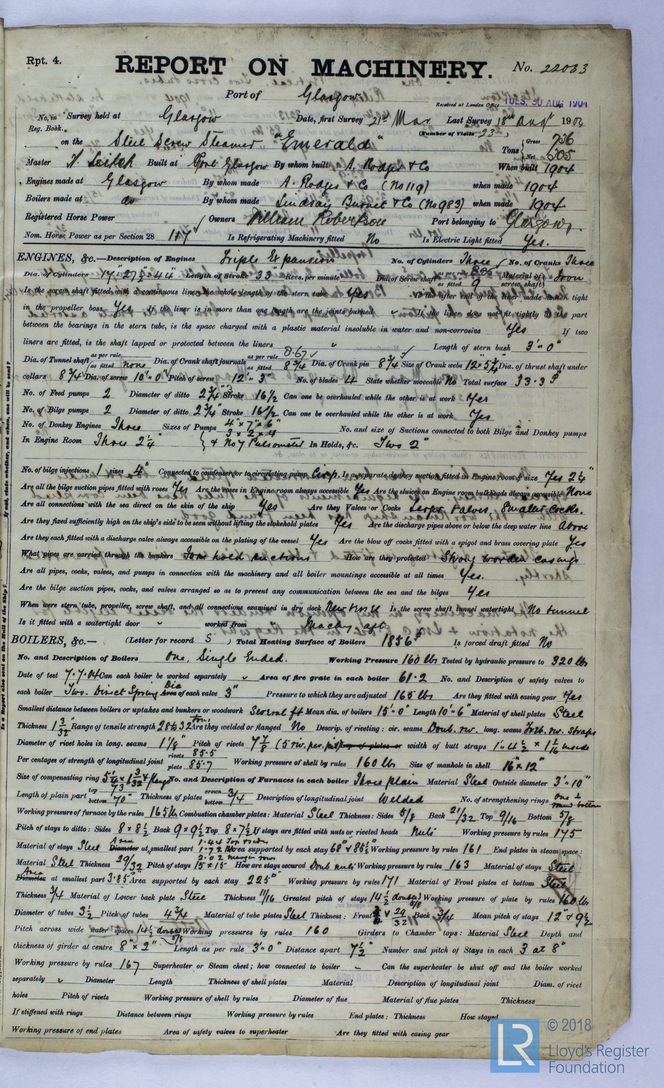 Rpt. 4.
REPORT ON MACHINERY.
No. 22033
Port of Glasgow
Received at London Office TUES. 30 AUG 1904
No. in Survey held at Glasgow Date, first Survey 21st Mar Last Survey 18th Augt 1904
Reg. Book. (Number of Visits 23)
on the Steel Screw Steamer "Emerald" Tons Gross 736 Net 305
Master Built at Port Glasgow By whom built A. Rodger & Co When built 1904
Engines made at Glasgow By whom made A. Rodger & Co (No 119) when made 1904
Boilers made at do By whom made Lindsay Burnet & Co (No 983) when made 1904
Registered Horse Power Owners William Robertson Port belonging to Glasgow
Nom. Horse Power as per Section 28 117 Is Refrigerating Machinery fitted No Is Electric Light fitted Yes.
ENGINES, &c.—Description of Engines Triple Expansion No. of Cylinders Three No. of Cranks Three
Dia. of Cylinders 17. 27½. 44 Length of Stroke 33 Revs. per minute Dia. of Screw shaft as fitted 9 Material of screw shaft Iron
Is the screw shaft fitted with a continuous liner the whole length of the stern tube Yes Is the after end of the liner made water tight
in the propeller boss Yes If the liner is in more than one length are the joints burned If the liner does not fit tightly at the part
between the bearings in the stern tube, is the space charged with a plastic material insoluble in water and non-corrosive Yes If two
liners are fitted, is the shaft lapped or protected between the liners " Length of stern bush 3'-0"
Dia. of Tunnel shaft as per rule as fitted none Dia. of Crank shaft journals as per rule 8.67 as fitted 8¾ Dia. of Crank pin 8¾ Size of Crank webs 12 × 5¾ Dia. of thrust shaft under
collars 8¾ Dia. of screw 10'-0" Pitch of screw 12'-3" No. of blades 4 State whether moveable No Total surface 33.3
No. of Feed pumps 2 Diameter of ditto 2¾ Stroke 16½ Can one be overhauled while the other is at work Yes
No. of Bilge pumps 2 Diameter of ditto 2¾ Stroke 16½ Can one be overhauled while the other is at work Yes
No. of Donkey Engines Three Sizes of Pumps 4" × 7" × 6" 3 × 2 × 4 No. and size of Suctions connected to both Bilge and Donkey pumps
In Engine Room Three 2¼" & No 7 Pulsometer In Holds, &c. Two 2"
No. of bilge injections 1 sizes 4" Connected to condenser, or to circulating pump Circp. Is a separate donkey suction fitted in Engine room & size Yes 2¼"
Are all the bilge suction pipes fitted with roses Yes Are the roses in Engine room always accessible Yes Are the sluices on Engine room bulkheads always accessible None
Are all connections with the sea direct on the skin of the ship Yes Are they Valves or Cocks Large Valves, Smaller Cocks.
Are they fixed sufficiently high on the ship's side to be seen without lifting the stokehold plates Yes Are the discharge pipes above or below the deep water line Above
Are they each fitted with a discharge valve always accessible on the plating of the vessel Yes Are the blow off cocks fitted with a spigot and brass covering plate Yes
What pipes are carried through the bunkers Iron hold suctions How are they protected Strong wooden casings
Are all pipes, cocks, valves, and pumps in connection with the machinery and all boiler mountings accessible at all times Yes.
Are the bilge suction pipes, cocks, and valves arranged so as to prevent any communication between the sea and the bilges Yes.
When were stern tube, propeller, screw shaft, and all connections examined in dry dock New Vessel Is the screw shaft tunnel watertight No tunnel
Is it fitted with a watertight door worked from Machy aft
BOILERS, &c.— (Letter for record S) Total Heating Surface of Boilers 1856 Is forced draft fitted No
No. and Description of Boilers One, Single Ended. Working Pressure 160 lbs Tested by hydraulic pressure to 320 lbs
Date of test 7.7.04 Can each boiler be worked separately Area of fire grate in each boiler 61.2 No. and Description of safety valves to
each boiler Two. Direct Spring Dia of each valve 3" Pressure to which they are adjusted 165 lbs Are they fitted with easing gear Yes
Smallest distance between boilers or uptakes and bunkers or woodwork Several ft Mean dia. of boilers 15'-0" Length 10'-6" Material of shell plates Steel
Thickness 1 3/32 Range of tensile strength 28½ 32 tons Are they welded or flanged No Descrip. of riveting: cir. seams Doub. riv. long. seams Treb. riv. straps
Diameter of rivet holes in long. seams 1⅛" Pitch of rivets 7⅞ (5 riv. per. pitch) width of butt straps 1'-4½ × 1 1/16 inside
Per centages of strength of longitudinal joint rivets 85.5 plate 85.7 Working pressure of shell by rules 160 lbs Size of manhole in shell 16" × 12"
Size of compensating ring No. and Description of Furnaces in each boiler Three plain Material Steel Outside diameter 3'-10"
Length of plain part top 73 bottom 70" Thickness of plates crown bottom ¾ Description of longitudinal joint Welded No. of strengthening rings one
Working pressure of furnace by the rules 165 lbs Combustion chamber plates: Material Steel Thickness: Sides ⅝ Back 21/32 Top 9/16 Bottom ⅝
Pitch of stays to ditto: Sides 8 × 8½ Back 9 × 9½ Top 8 × 7½ If stays are fitted with nuts or riveted heads Nuts Working pressure by rules 175
Material of stays Steel Area at smallest part 1.44 1.72 Area supported by each stay 68" × 85½" Working pressure by rules 161 End plates in steam space:
Material Steel Thickness 29/32 Pitch of stays 15 × 15 How are stays secured Doub nuts Working pressure by rules 163 Material of stays Steel
Area at smallest part 3.85 Area supported by each stay 225" Working pressure by rules 171 Material of Front plates at bottom Steel
Thickness ¾ Material of Lower back plate Steel Thickness 11/16 Greatest pitch of stays 14½ Working pressure of plate by rules 160 lbs
Diameter of tubes 3½ Pitch of tubes 4¾ Material of tube plates Steel Thickness: Front 29/32 Back ¾ Mean pitch of stays 12 × 9½
Pitch across wide water spaces 14½ Working pressures by rules 160 Girders to Chamber tops: Material Steel Depth and
thickness of girder at centre 8" × 2" Length as per rule 3'-0" Distance apart 7½ Number and pitch of Stays in each 3 at 8"
Working pressure by rules 167 Superheater or Steam chest; how connected to boiler - Can the superheater be shut off and the boiler worked
separately Diameter Length Thickness of shell plates Material Description of longitudinal joint Diam. of rivet
holes Pitch of rivets Working pressure of shell by rules Diameter of flue Material of flue plates Thickness
If stiffened with rings Distance between rings Working pressure by rules End plates: Thickness How stayed
Working pressure of end plates Area of safety valves to superheater Are they fitted with easing gear
LR
© 2018
Lloyd's Register
Foundation